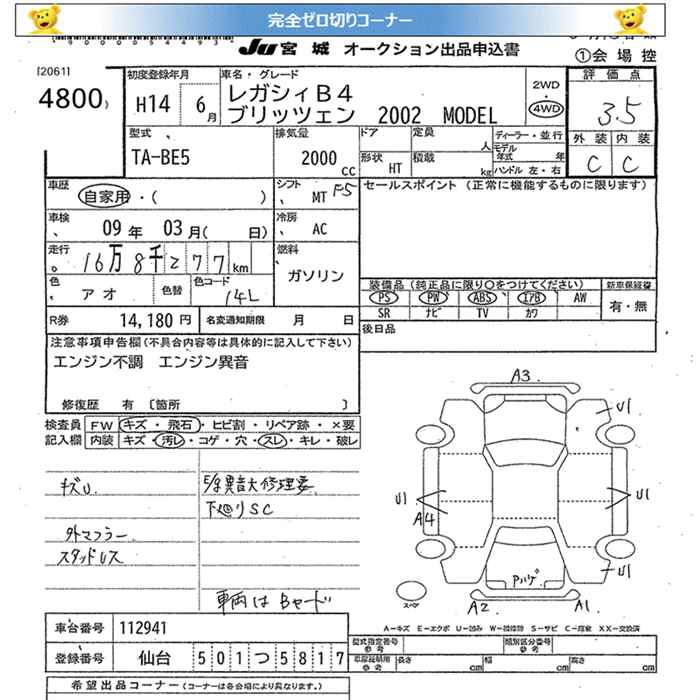 完全ゼロ切りコーナー
JU 宮城 オークション出品申込書
①会場控
[2061]
4800
初度登録年月
H14 6月
車名・グレード
レガシィB4
ブリッツェン 2002 MODEL
2WD
・
4WD
評価点
3.5
外装 内装
C C
型式
TA-BE5
排気量
2000 cc
ドア
形状 HT
定員 人
積載 kg
ディーラー・並行
モデル年式 年
ハンドル 左・右
車歴
自家用・( )
シフト
MT F5
セールスポイント (正常に機能するものに限ります)
車検
09年 03月( 日)
冷房
AC
走行
16万8千277km
燃料
ガソリン
色
アオ
色替
色コード
14L
装備品 (純正品に限り○をつけてください)
新車保証書
PS PW ABS エアB AW
SR ナビ TV カワ
有・無
R券 14,180円
名変通知期限 月 日
後日品
注意事項申告欄(不具合内容等は具体的に記入して下さい)
エンジン不調 エンジン異音
修復歴 有 [箇所 ]
検査員
記入欄
FW キズ・飛石・ヒビ割・リペア跡・×要
内装 キズ・汚レ・コゲ・穴・スレ・キレ・破レ
キズU.
E/g異音大修理要.
下廻りSC
外マフラー
スタッドレス
車両は Bヤード
A3
U1
U1
A4
U1
U1
Pハゲ
A2
A1
スペア
A-キズ E-エクボ U-凹み W-補修跡 S-サビ C-腐食 XX-交換済
車台番号 112941
登録番号 仙台 501つ5817
型式指定番号
参考
類別区分番号
参考
車庫証明用
参考
長さ
幅
高さ
希望出品コーナー (コーナーは各会場により異なります。)